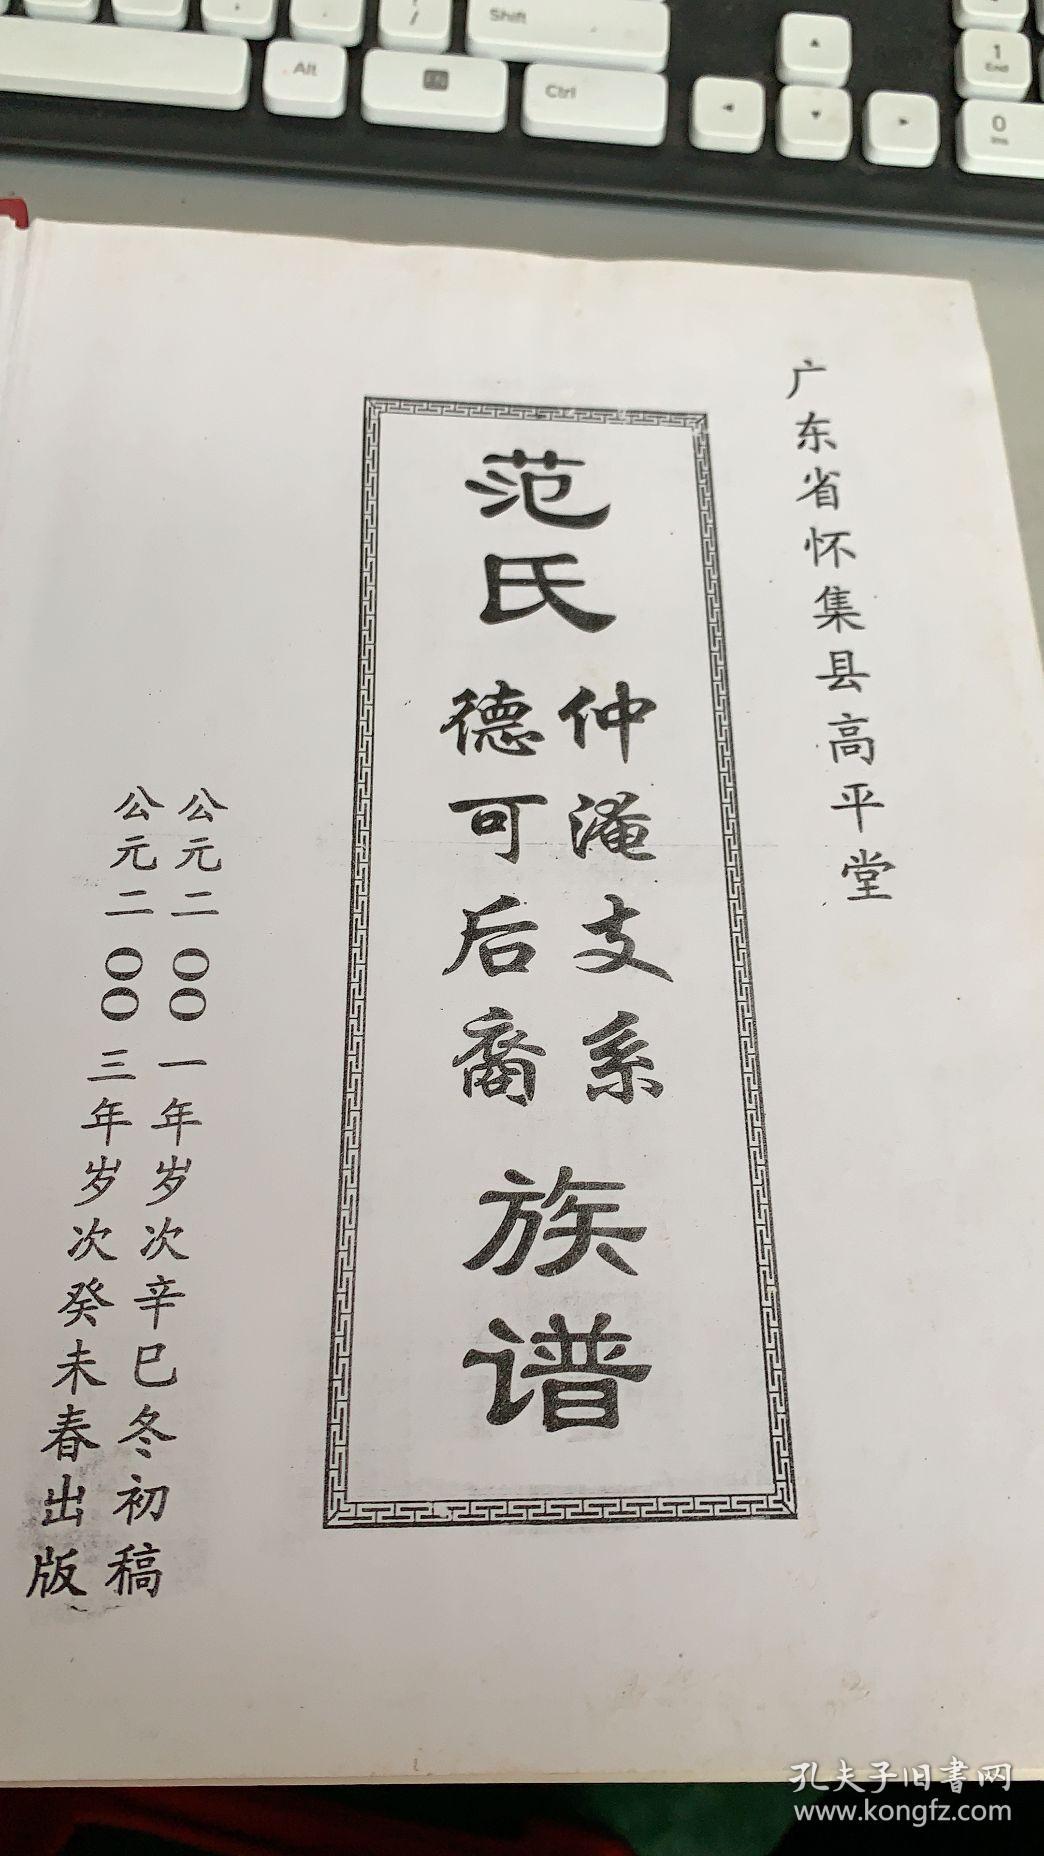 Shift
Alt
Ctrl
1
End
0
Ins
/
广东省怀集县高平堂
范氏
仲淹支系
德可后裔
族谱
公元二〇〇一年岁次辛巳冬初稿
公元二〇〇三年岁次癸未春出版
孔夫子旧書网
www.kongfz.com